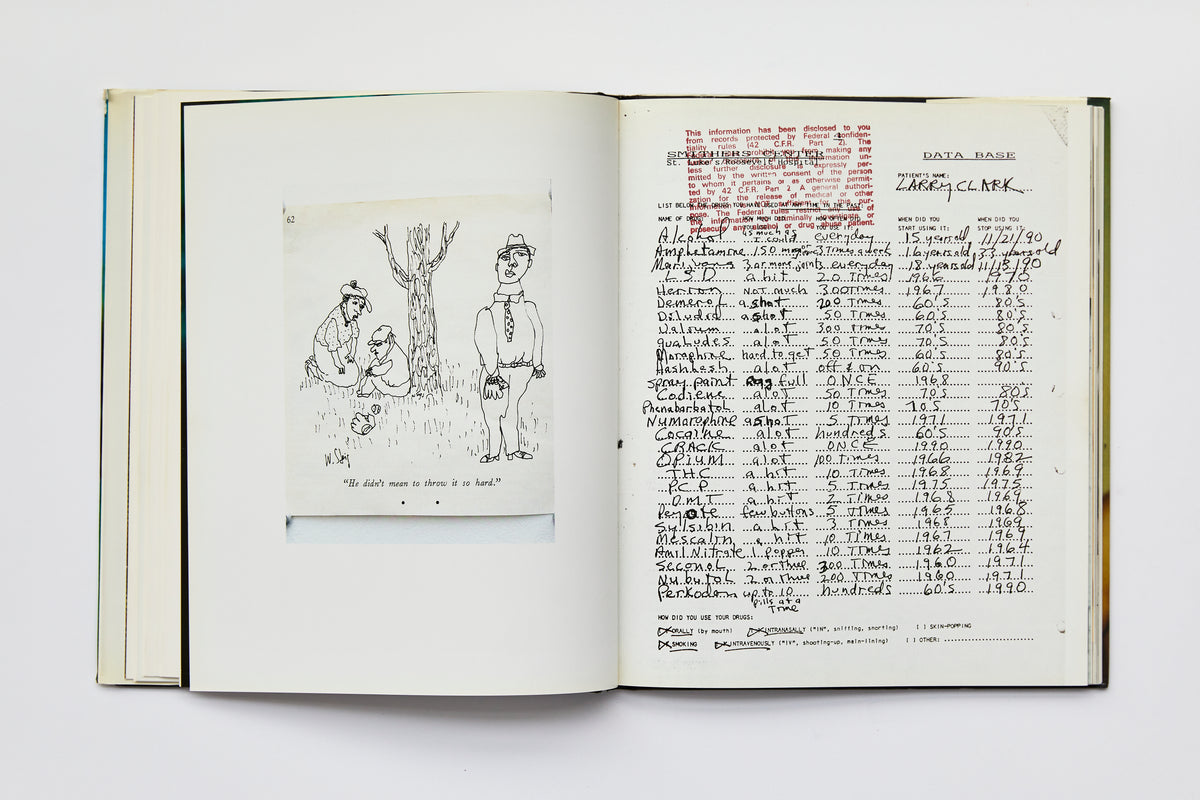 62
W. Steig
"He didn't mean to throw it so hard."
This information has been disclosed to you
from records protected by Federal confiden-
tiality rules (42 C.F.R. Part 2). The
prohibit you from making any
information un-
less further disclosure is expressly per-
mitted by the written consent of the person
to whom it pertains or as otherwise permit-
ted by 42 C.F.R. Part 2. A general authori-
zation for the release of medical or other
information is NOT sufficient for this pur-
pose. The Federal rules restrict any use of
the information to criminally investigate or
prosecute any alcohol or drug abuse patient.
SMITHERS CENTER
St. Luke's/Roosevelt Hospital
DATA BASE
PATIENT'S NAME:
LARRY CLARK
LIST BELOW THE DRUGS YOU HAVE USED AT ANY TIME IN THE PAST:
NAME OF DRUG: HOW MUCH DID YOU USE: HOW OFTEN DID YOU USE IT: WHEN DID YOU START USING IT: WHEN DID YOU STOP USING IT:
Alcohol as much as I could everyday 15 years old 11/21/90
Amphetamine 150 mgs 3 Times a week 16 years old 33 years old
Marijuana 3 or more joints everyday 18 years old 11/15/90
LSD a hit 20 Times 1966 1970
Herion not much 300 Times 1967 1980
Demerol a shot 200 Times 60's 80's
Diludid a shot 50 Times 60's 80's
Valium alot 300 Times 70's 80's
qualudes alot 50 Times 70's 80's
Moraphine hard to get 50 Times 60's 80's
Hashhesh alot off & on 60's 90's
Spray paint Rag full ONCE 1968
Codiene alot 50 Times 70's 80's
Phenabarbatol alot 10 Times 70's 70's
Numoraphine a shot 5 Times 1971 1971
Cocaine alot hundreds 60's 90's
CRACK alot ONCE 1990 1990
Opium alot 100 times 1966 1982
THC a hit 10 Times 1968 1969
PCP a hit 5 Times 1975 1975
DMT a hit 2 Times 1968 1969
Peyote few buttons 5 Times 1965 1968
Sylsibin a hit 3 Times 1968 1969
Mescalin a hit 10 Times 1967 1969
Amil Nitrate 1 popper 10 Times 1962 1964
Seconol 2 or three 300 Times 1960 1971
Nubutol 2 or three 200 Times 1960 1971
Perkodan up to 10 pills at a Time hundreds 60's 1990
HOW DID YOU USE YOUR DRUGS:
ORALLY (by mouth) INTRANASALLY ("IN", sniffing, snorting) [ ] SKIN-POPPING
SMOKING INTRAVENOUSLY ("IV", shooting-up, main-lining) [ ] OTHER: